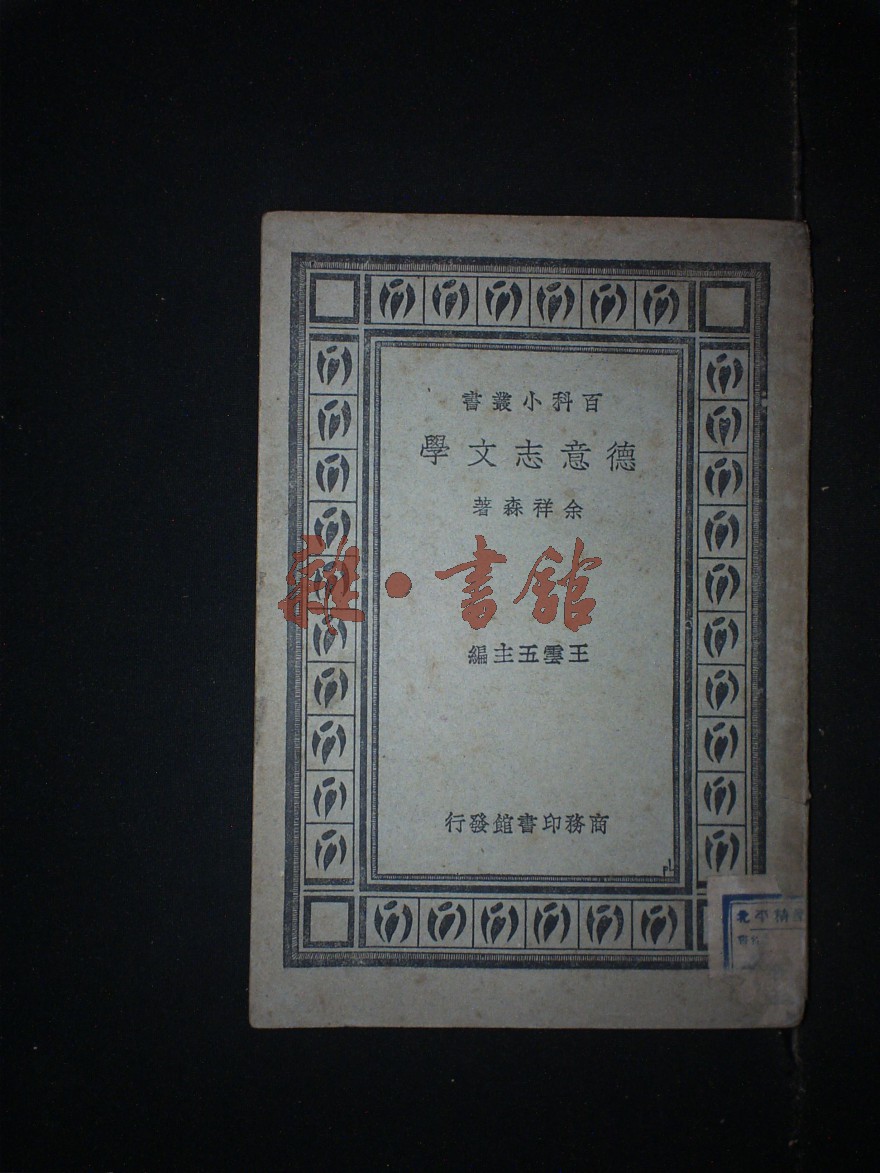 百科小叢書
德意志文學
余祥森著
雜·書館
王雲五主編
商務印書館發行
北平精